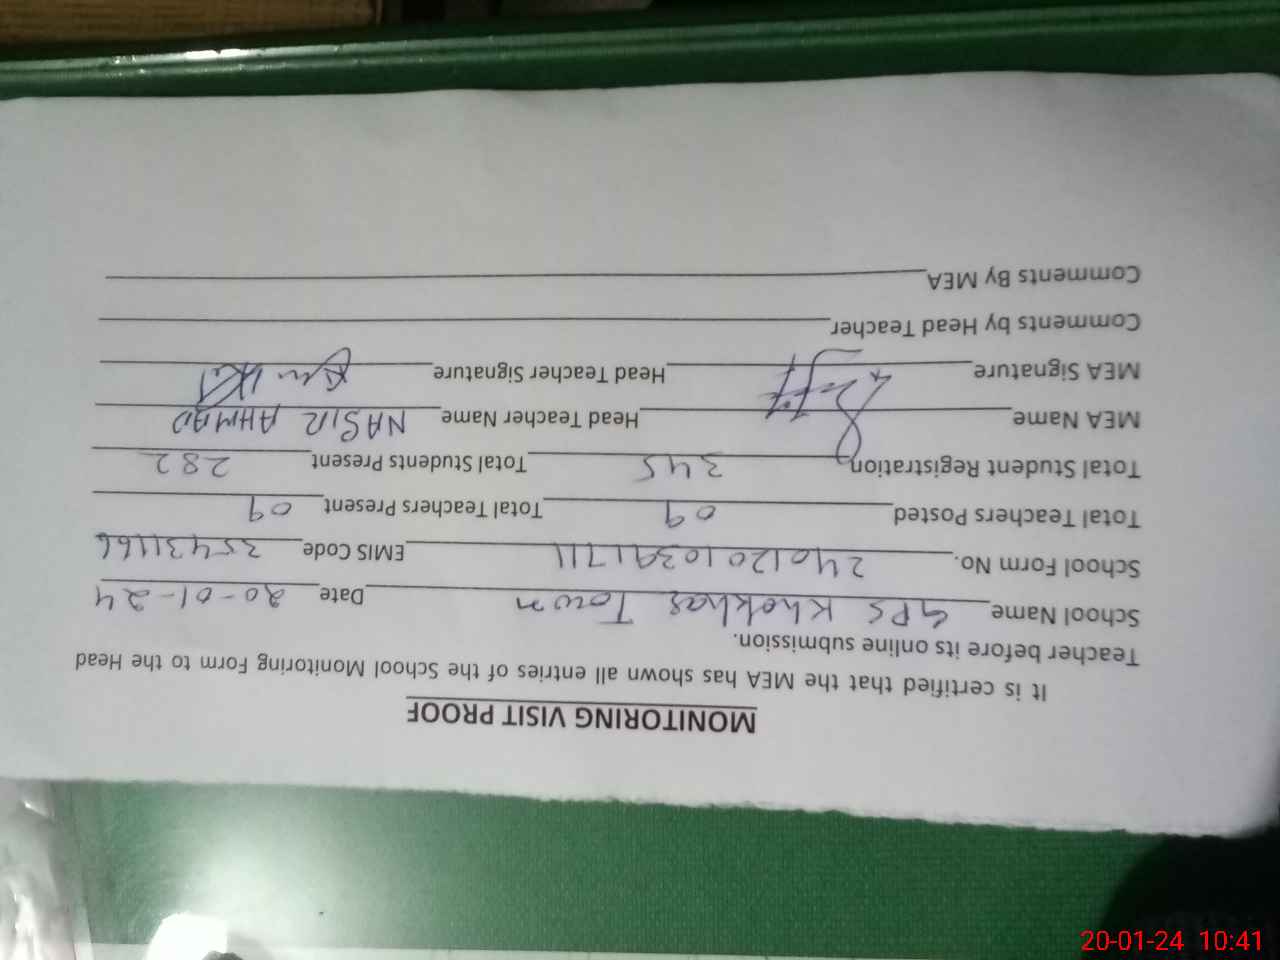 MONITORING VISIT PROOF
It is certified that the MEA has shown all entries of the School Monitoring Form to the Head
Teacher before its online submission.
School Name GPS Khokhar Town Date 20-01-24
School Form No. 24012010391711 EMIS Code 35431166
Total Teachers Posted 09 Total Teachers Present 09
Total Student Registration 345 Total Students Present 282
MEA Name Head Teacher Name NASIR AHMAD
MEA Signature Head Teacher Signature
Comments by Head Teacher
Comments By MEA
20-01-24 10:41